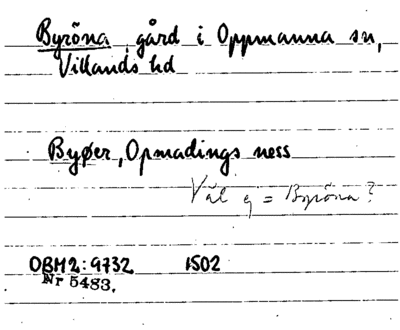 Byröna, gård i Oppmanna sn,
Villands hd
Byøer, Opmadings ness
Väl ej = Byröna?
OBM2:9732 1502
Nr 5483.